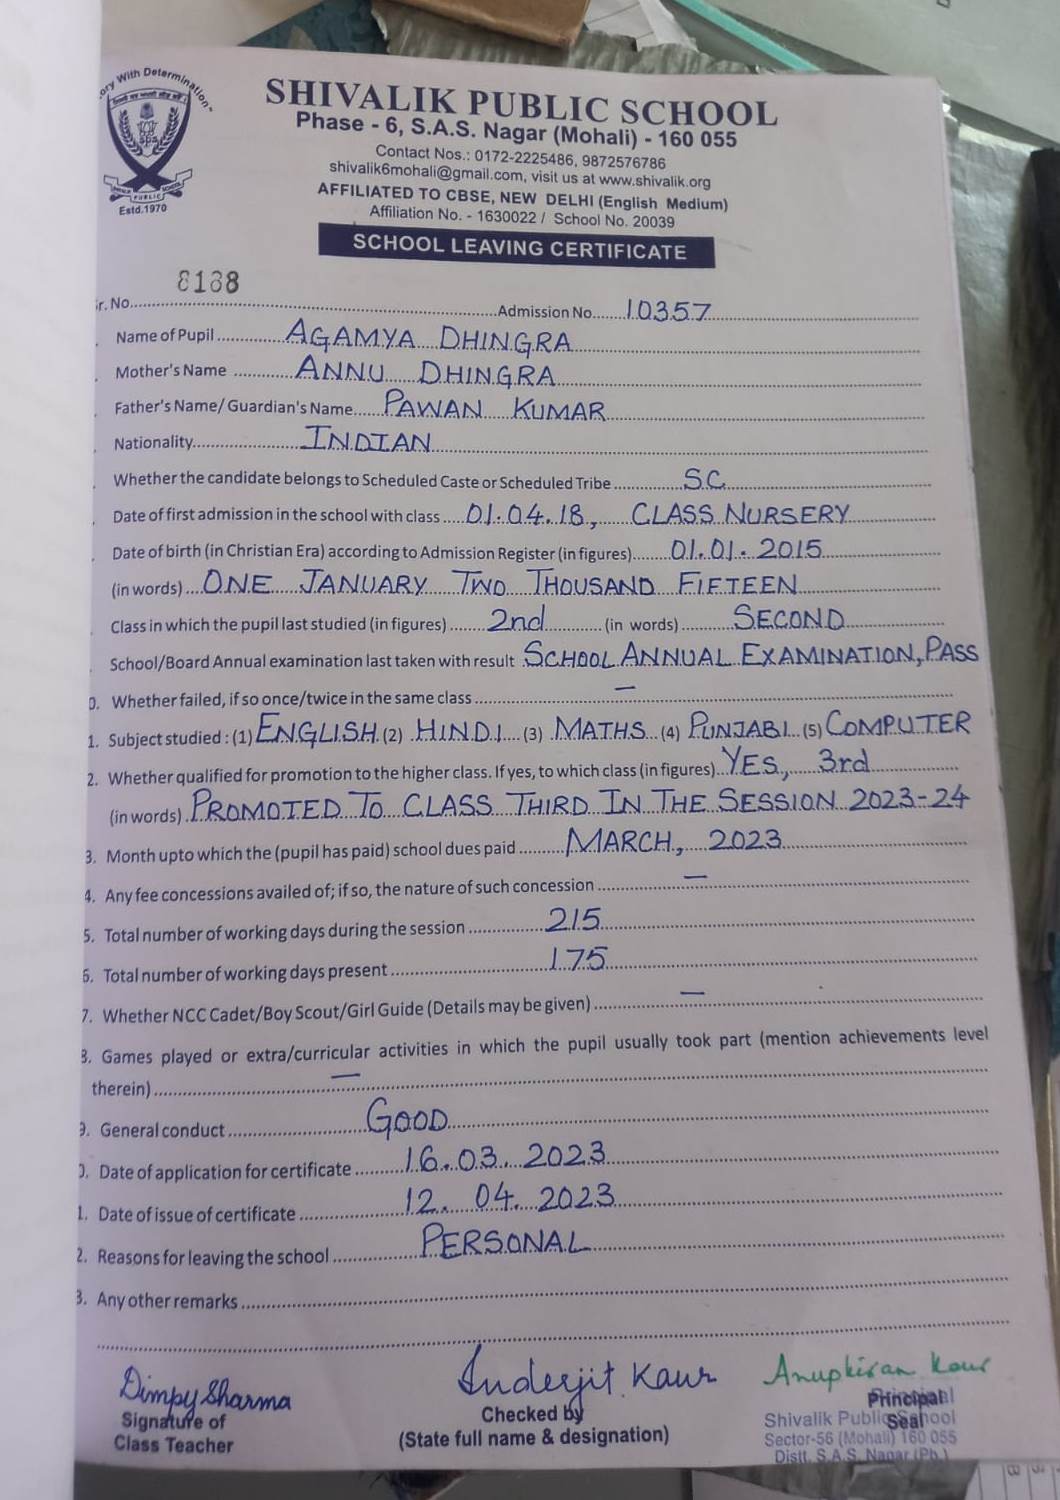 ory With Determination"
SHIVALIK PUBLIC SCHOOL
Phase - 6, S.A.S. Nagar (Mohali) - 160 055
Contact Nos.: 0172-2225486, 9872576786
shivalik6mohali@gmail.com, visit us at www.shivalik.org
AFFILIATED TO CBSE, NEW DELHI (English Medium)
Affiliation No. - 1630022 / School No. 20039
Estd.1970
SCHOOL LEAVING CERTIFICATE
r. No. 8138 Admission No. 10357
Name of Pupil AGAMYA DHINGRA
Mother's Name ANNU DHINGRA
Father's Name/ Guardian's Name PAWAN KUMAR
Nationality INDIAN
Whether the candidate belongs to Scheduled Caste or Scheduled Tribe SC
Date of first admission in the school with class 01.04.18, CLASS NURSERY
Date of birth (in Christian Era) according to Admission Register (in figures) 01.01.2015
(in words) ONE JANUARY TWO THOUSAND FIFTEEN
Class in which the pupil last studied (in figures) 2nd (in words) SECOND
School/Board Annual examination last taken with result SCHOOL ANNUAL EXAMINATION, PASS
0. Whether failed, if so once/twice in the same class —
1. Subject studied : (1) ENGLISH (2) HINDI (3) MATHS (4) PUNJABI (5) COMPUTER
2. Whether qualified for promotion to the higher class. If yes, to which class (in figures) YES, 3rd
(in words) PROMOTED TO CLASS THIRD IN THE SESSION 2023-24
3. Month upto which the (pupil has paid) school dues paid MARCH, 2023
4. Any fee concessions availed of; if so, the nature of such concession —
5. Total number of working days during the session 215
6. Total number of working days present 175
7. Whether NCC Cadet/Boy Scout/Girl Guide (Details may be given) —
8. Games played or extra/curricular activities in which the pupil usually took part (mention achievements level
therein) —
9. General conduct GOOD
0. Date of application for certificate 16.03.2023
1. Date of issue of certificate 12.04.2023
2. Reasons for leaving the school PERSONAL
3. Any other remarks
Dimpy Sharma Inderjit Kaur Anupkiran Kaur
Signature of Class Teacher
Checked by
(State full name & designation)
Principal
Seal
Principal
Shivalik Public School
Sector-56 (Mohali) 160 055
Distt. S.A.S. Nagar (Pb.)